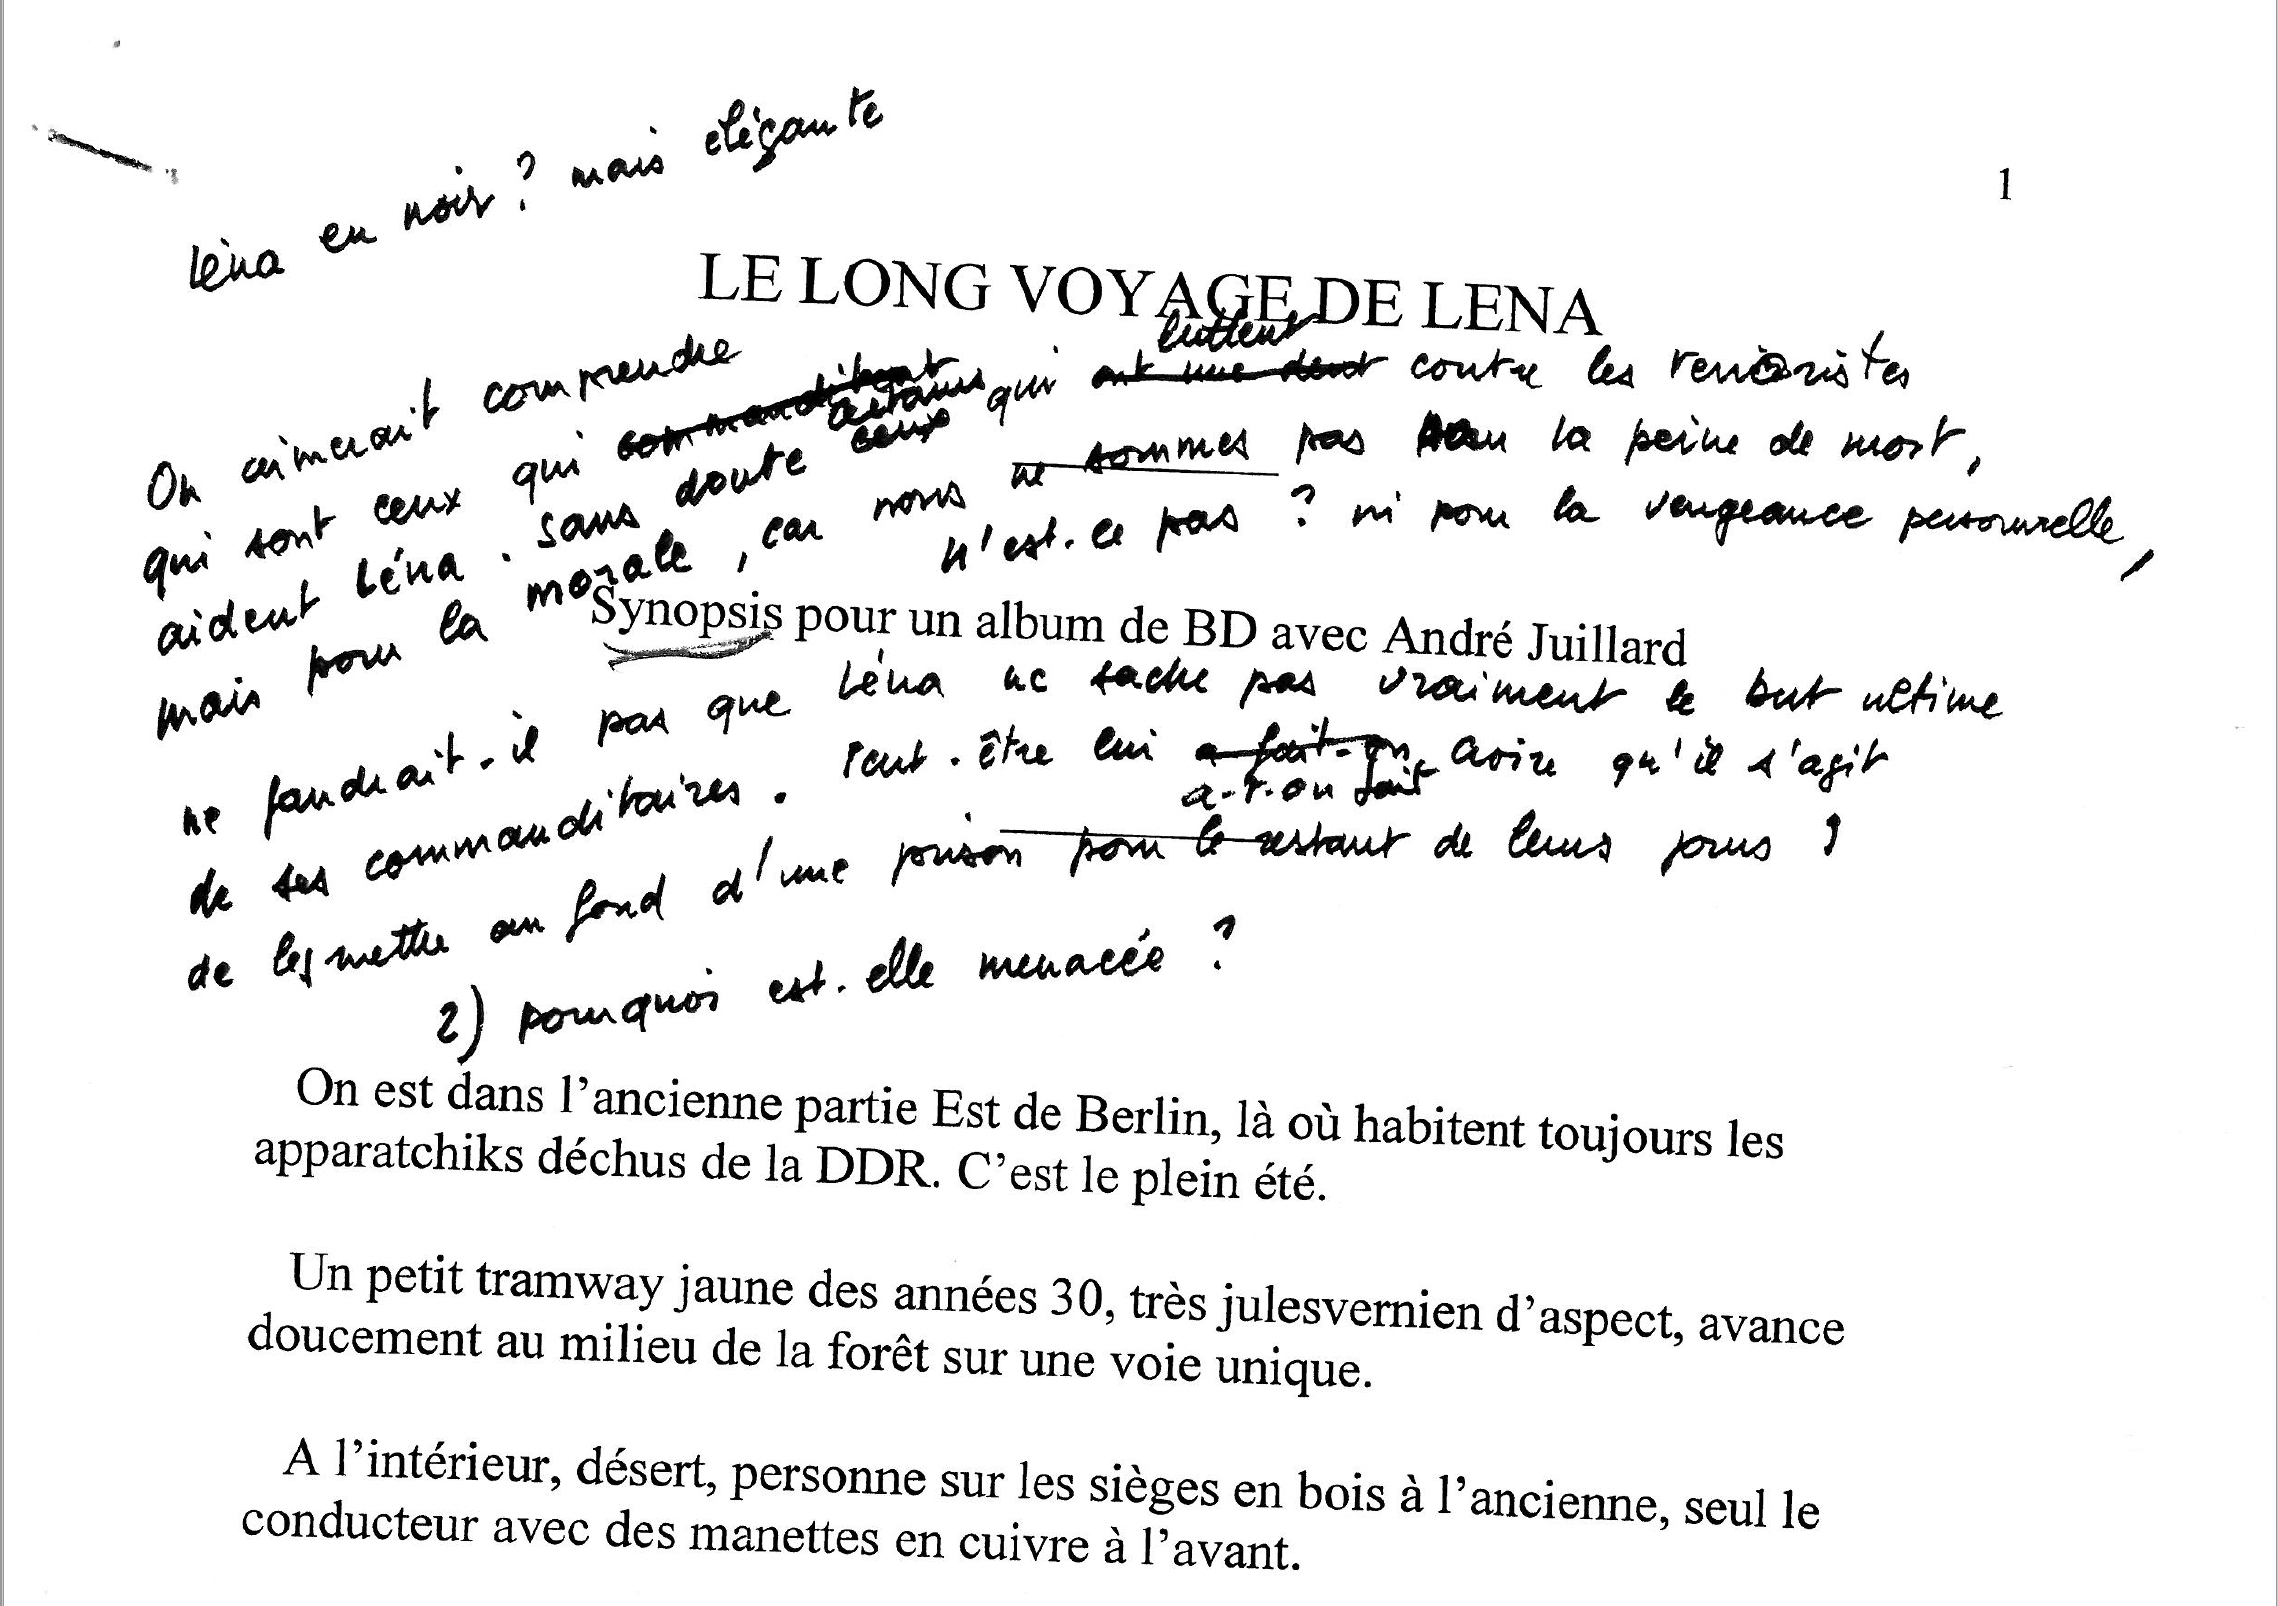 Léna en noir ? mais élégante
1
LE LONG VOYAGE DE LENA
On aimerait comprendre
qui sont ceux qui commanditent
aident Léna. sans doute ceux certains qui ont une dent luttent contre les terroristes
mais pour la morale, car nous ne sommes pas pour la peine de mort,
n'est-ce pas ? ni pour la vengeance personnelle,
Synopsis pour un album de BD avec André Juillard
ne faudrait-il pas que Léna ne sache pas vraiment le but ultime
de ses commanditaires. Peut-être lui a fait-on a-t-on fait croire qu'il s'agit
de les mettre au fond d'une prison pour le restant de leurs jours ?
2) pourquoi est-elle menacée ?
On est dans l'ancienne partie Est de Berlin, là où habitent toujours les
apparatchiks déchus de la DDR. C'est le plein été.
Un petit tramway jaune des années 30, très julesvernien d'aspect, avance
doucement au milieu de la forêt sur une voie unique.
A l'intérieur, désert, personne sur les sièges en bois à l'ancienne, seul le
conducteur avec des manettes en cuivre à l'avant.